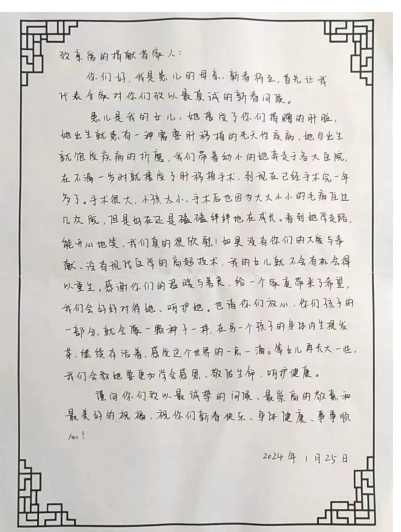 致亲爱的捐献者家人：
你们好，我是兔儿的母亲，新春将至，首先让我
代表全家对你们致以最真诚的新春问候。
兔儿是我的女儿，她接受了你们捐赠的肝脏，
她出生就患有一种需要肝移植的先天性疾病，她自出生
就饱受疾病的折磨，我们带着幼小的她奔走于各大医院，
在不满一岁时就接受了肝移植手术，到现在已经手术完一年
多了。手术很大，小孩太小，手术后也因为大大小小的毛病住过
几次院，但是好在还是磕磕绊绊地在成长。看到她学走路，
能开心地笑，我们真的很欣慰！如果没有你们的大爱与奉
献、没有现代医学的高超技术，我的女儿就不会有机会得
以重生，感谢你们的慈悲与善良，给一个家庭带来了希望，
我们会好好对待她、呵护她。也请你们放心，你们孩子的
一部分，就会像一颗种子一样，在另一个孩子的身体内生根发
芽，继续存活着，感受这个世界的一点一滴。等女儿再长大一些，
我们会教她要更加学会感恩、敬畏生命、呵护健康。
谨向你们致以最诚挚的问候、最崇高的敬意和
最美好的祝福，祝你们新春快乐、身体健康、事事顺
心！
2024年1月25日